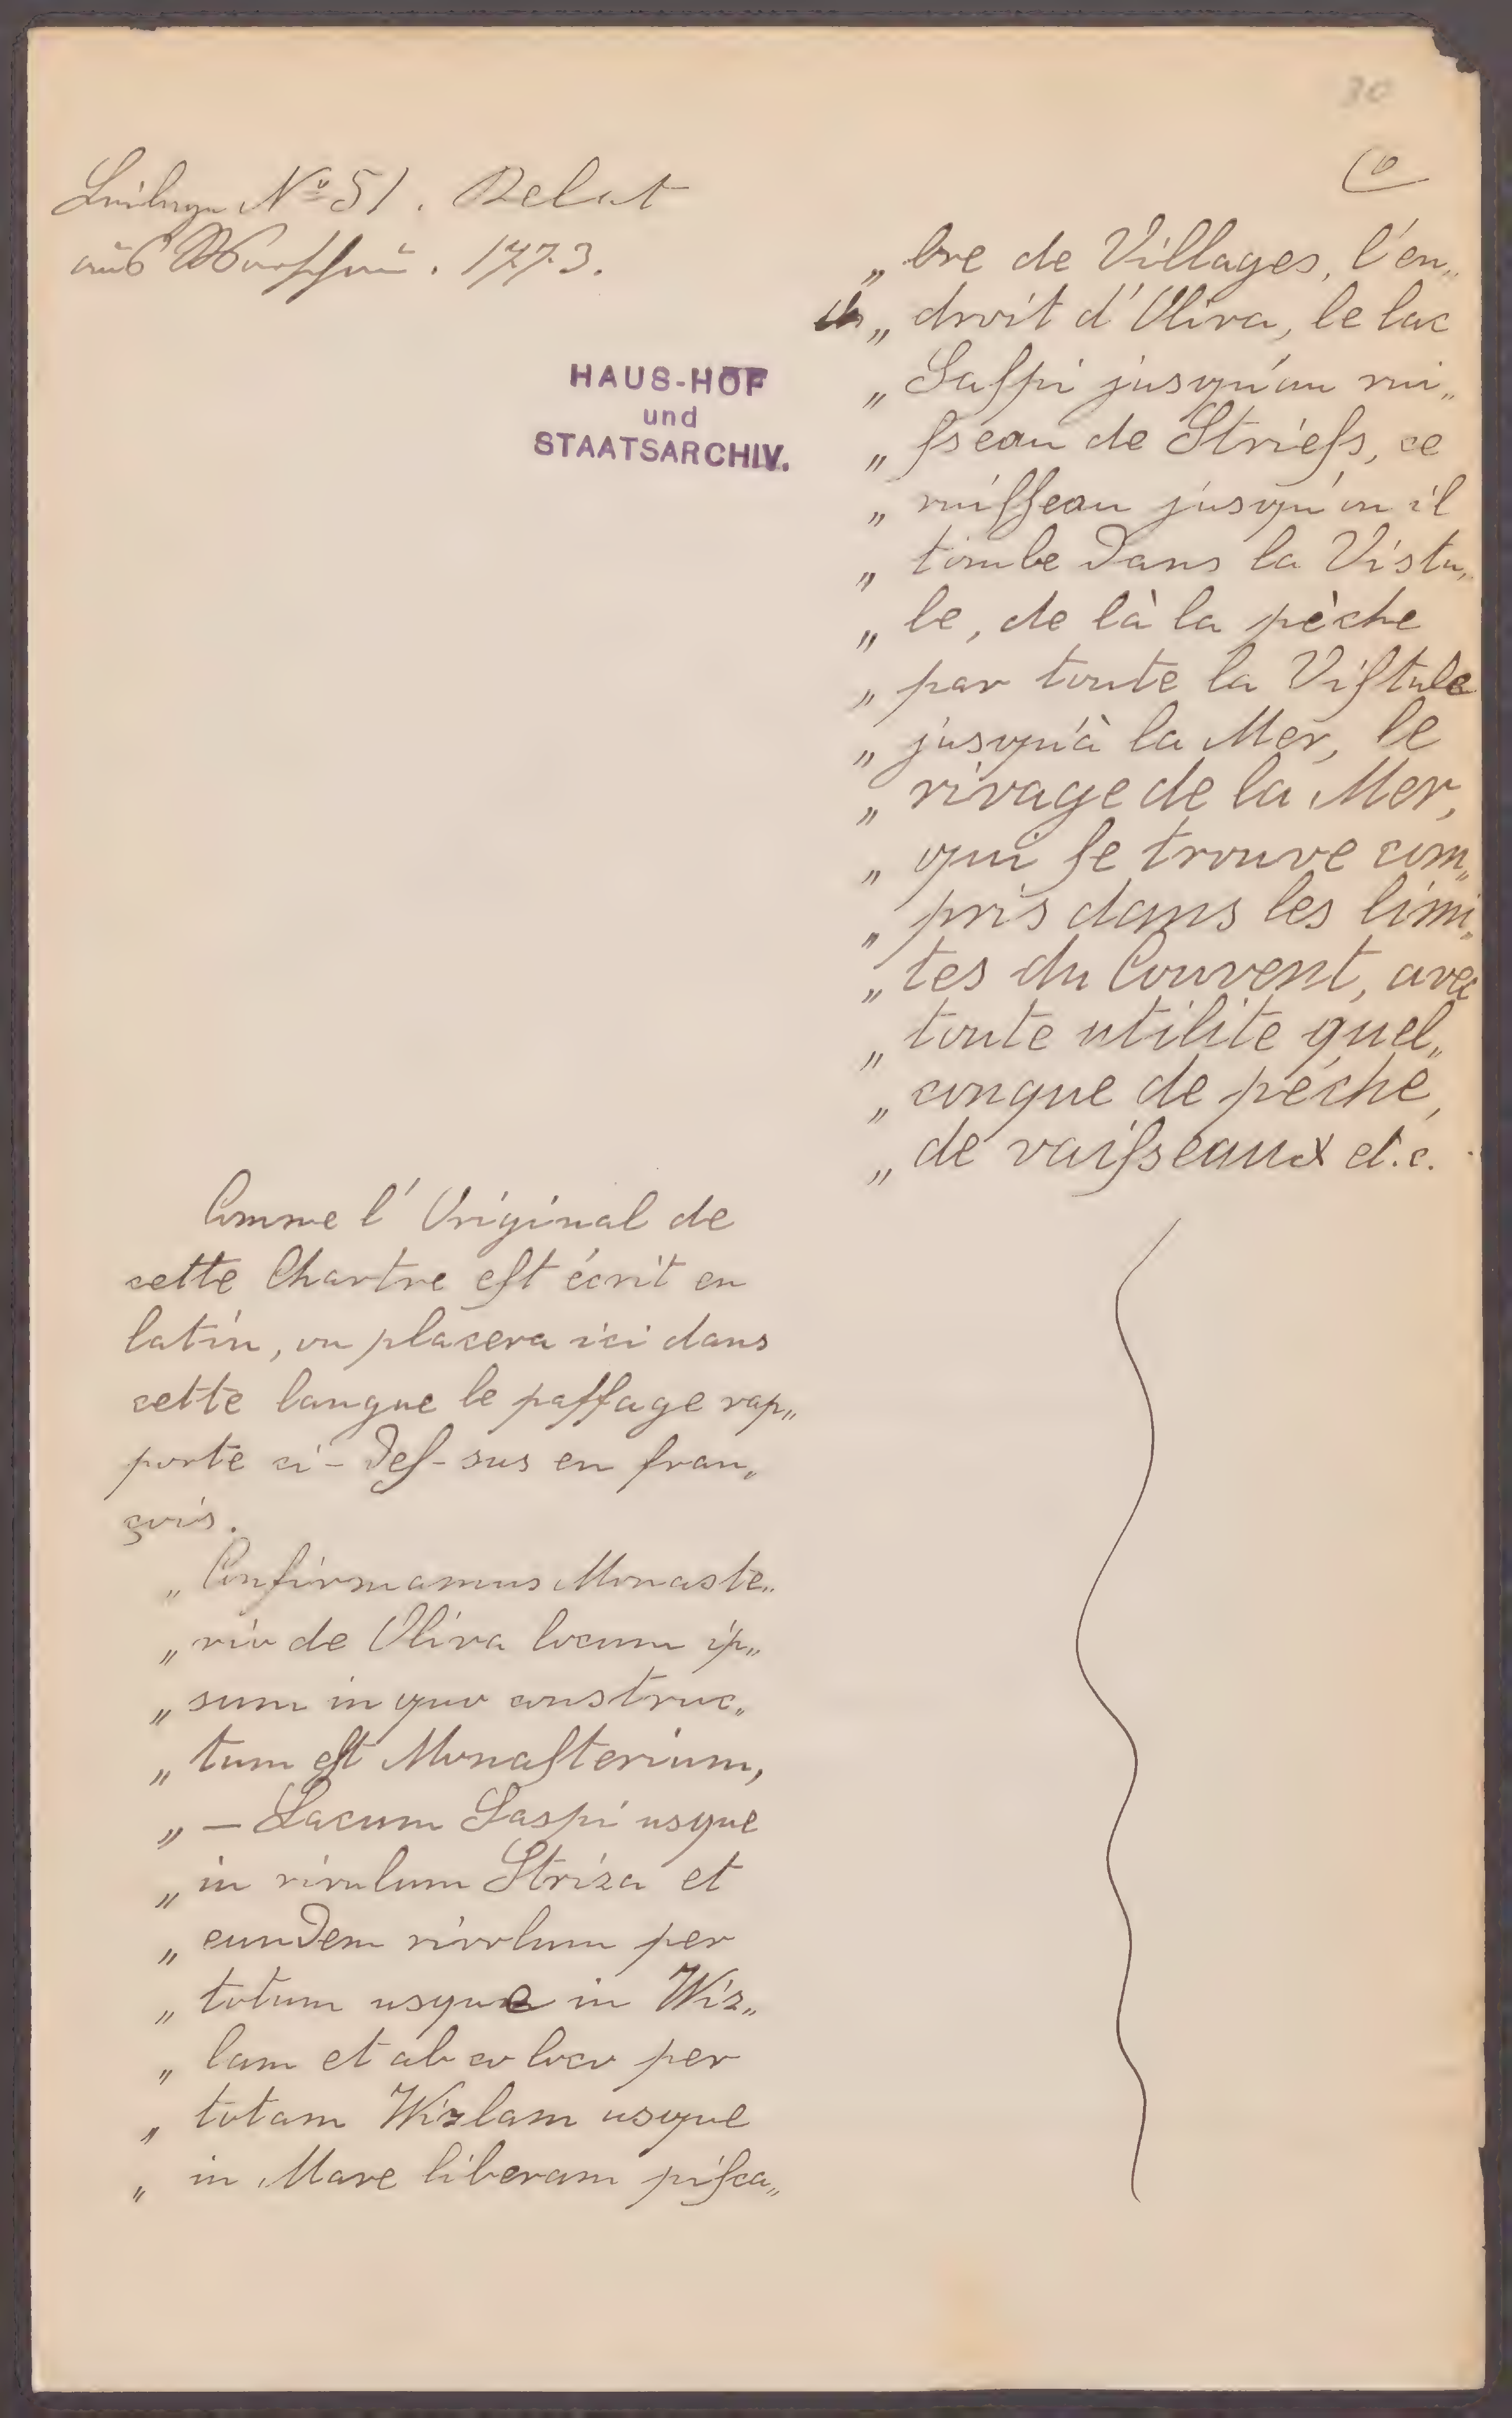 30
Beilage Nº 51. Relat
aus Warschau. 1773.
HAUS-HOF
und
STAATSARCHIV.
„ bre de Villages, l'en„
„ droit d'Oliva, le lac
„ Saſpi jusqu'au rui„
„ ſseau de Strieſs, ce
„ ruiſſeau jusqu'ou il
„ tombe dans la Vistu„
„ le, de là la pèche
„ par toute la Viſtule
„ jusqu'à la Mer, le
„ rivage de la Mer,
„ qui ſe trouve com„
„ pris dans les limi„
„ tes du Couvent, avec
„ toute utilite quel„
„ conque de péche,
„ de vaiſseaux et.c.
Comme l'Original de
cette Chartre eſt écrit en
latin, on placera ici dans
cette langue le paſſage rap„
porte ci-deſ-sus en fran„
çois.
„ Confirmamus Monaste„
„ rio de Oliva locum ip„
„ sum in quo construc„
„ tum eſt Monaſterium,
„ — Lacum Saspi usque
„ in rivulum Striza et
„ eundem rivolum per
„ totum usque in Wiz„
„ lam et ab eo loco per
„ totam Wizlam usque
„ in Mare liberam piſca„